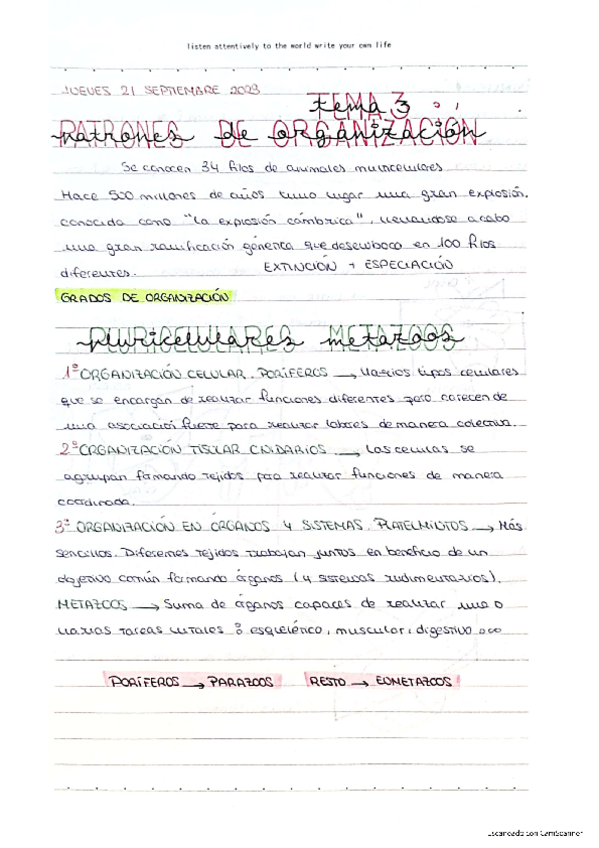 listen attentively to the world write your own life
JUEVES 21 SEPTIEMBRE 2023
TEMA 3
PATRONES DE ORGANIZACIÓN
Se conocen 34 filos de animales multicelulares
Hace 500 millones de años tuvo lugar una gran explosión
conocida como "la explosión cámbrica", llevándose a cabo
una gran ramificación genérica que desembocó en 100 filos
diferentes. EXTINCIÓN + ESPECIACIÓN
GRADOS DE ORGANIZACIÓN
PLURICELULARES METAZOOS
1º ORGANIZACIÓN CELULAR. PORÍFEROS → Varios tipos celulares
que se encargan de realizar funciones diferentes pero carecen de
una asociación fuerte para realizar labores de manera colectiva.
2º ORGANIZACIÓN TISULAR CNIDARIOS → Las células se
agrupan formando tejidos para realizar funciones de manera
coordinada.
3º ORGANIZACIÓN EN ÓRGANOS Y SISTEMAS. PLATELMINTOS → Más
sencillos. Diferentes tejidos trabajan juntos en beneficio de un
objetivo común formando órganos (y sistemas rudimentarios).
METAZOOS → Suma de órganos capaces de realizar una o
varias tareas vitales: esquelético, muscular, digestivo ...
PORÍFEROS → PARAZOOS RESTO → EUMETAZOOS
Escaneado con CamScanner